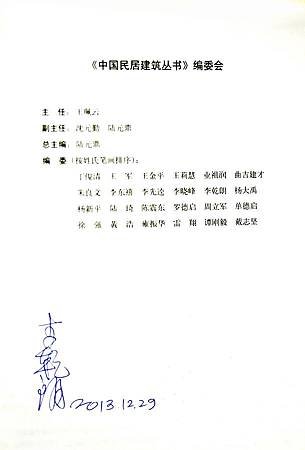 《中国民居建筑丛书》编委会
主 任：王珮云
副主任：沈元勤 陆元鼎
总主编：陆元鼎
编 委（按姓氏笔画排序）：
丁俊清 王 军 王金平 王莉慧 业祖润 曲吉建才
朱良文 李东禧 李先逵 李晓峰 李乾朗 杨大禹
杨新平 陆 琦 陈震东 罗德启 周立军 单德启
徐 强 黄 浩 雍振华 雷 翔 谭刚毅 戴志坚
李乾朗
2013.12.29